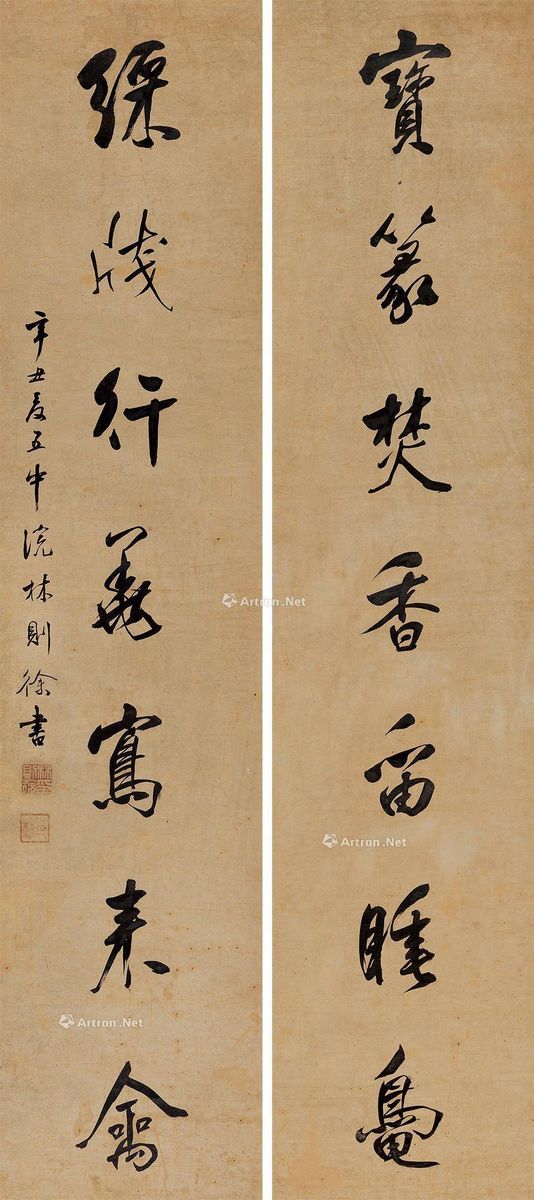 寶篆焚香留睡鴨
綵牋行寫來禽
辛丑夏五中浣林則徐書
Artron.Net
Artron.Net
Artron.Net